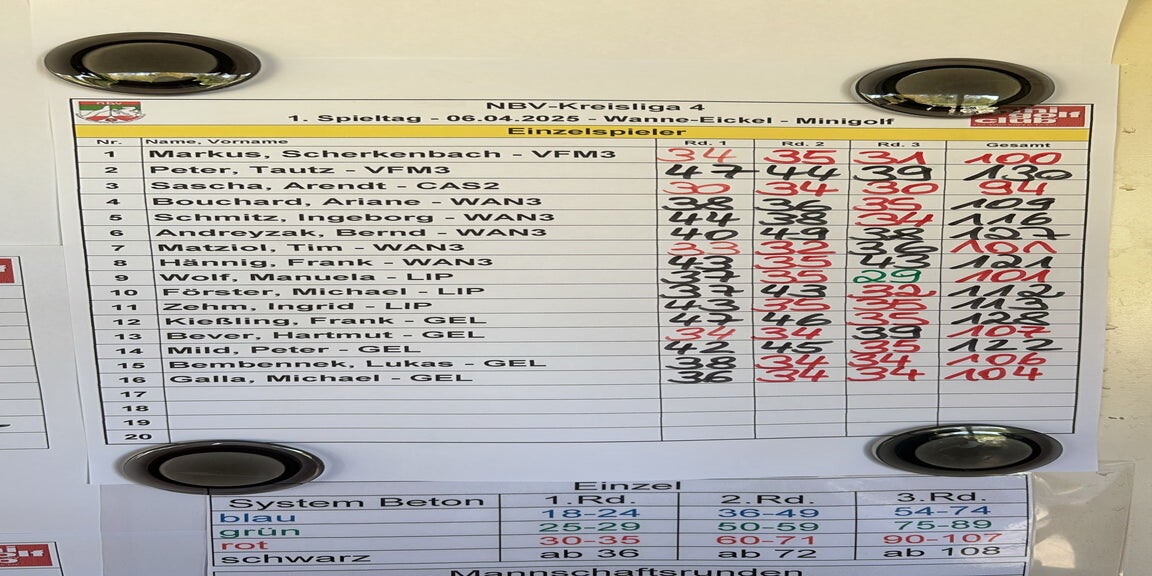 NBV
NBV-Kreisliga 4
1. Spieltag - 06.04.2025 - Wanne-Eickel - Minigolf
golf
club
Einzelspieler
Nr. Name, Vorname Rd. 1 Rd. 2 Rd. 3 Gesamt
1 Markus, Scherkenbach - VFM3 34 35 31 100
2 Peter, Tautz - VFM3 47 44 39 130
3 Sascha, Arendt - CAS2 30 34 30 94
4 Bouchard, Ariane - WAN3 38 36 35 109
5 Schmitz, Ingeborg - WAN3 44 38 34 116
6 Andreyzak, Bernd - WAN3 40 49 38 127
7 Matziol, Tim - WAN3 33 32 36 101
8 Hännig, Frank - WAN3 43 35 43 121
9 Wolf, Manuela - LIP 37 35 29 101
10 Förster, Michael - LIP 37 43 32 112
11 Zehm, Ingrid - LIP 43 35 35 113
12 Kießling, Frank - GEL 47 46 35 128
13 Bever, Hartmut - GEL 34 34 39 107
14 Mild, Peter - GEL 42 45 35 122
15 Bembennek, Lukas - GEL 38 34 34 106
16 Galla, Michael - GEL 36 34 34 104
17
18
19
20
Einzel
System Beton 1.Rd. 2.Rd. 3.Rd.
blau 18-24 36-49 54-74
grün 25-29 50-59 75-89
rot 30-35 60-71 90-107
schwarz ab 36 ab 72 ab 108
Mannschaftsrunden